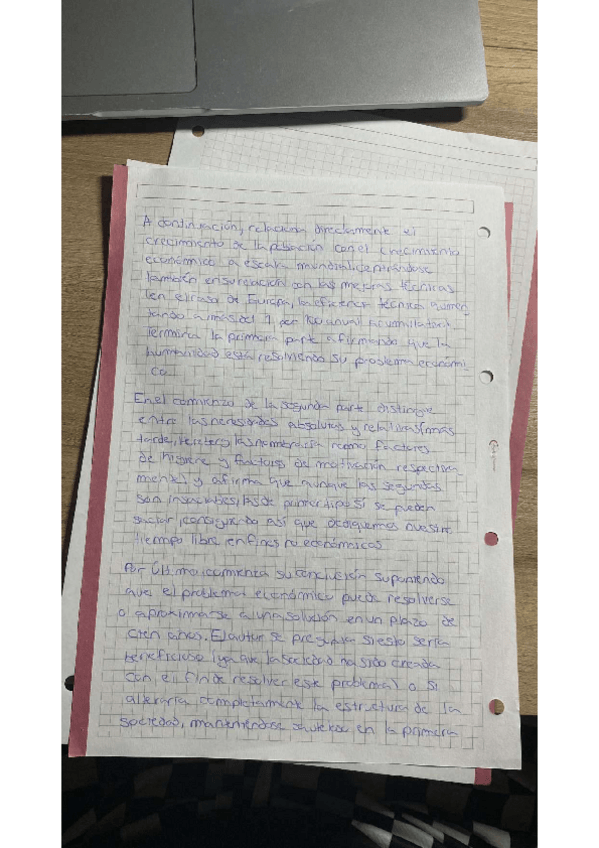 A continuación, relaciona directamente el
crecimiento de la población con el crecimiento
económico a escala mundial, centrándose
también en su relación con las mejoras técnicas
(en el caso de Europa, la eficiencia técnica aumen
tando a más del 1 por 100 anual acumulativo).
Termina la primera parte afirmando que la
humanidad está resolviendo su problema económi
co.
En el comienzo de la segunda parte, distingue
entre las necesidades absolutas y relativas (más
tarde, las nombraría como factores
de higiene y factores de motivación respectiva
mente) y afirma que aunque las segundas
son insaciables, las de primer tipo sí se pueden
saciar, consiguiendo así que dediquemos nuestro
tiempo libre en fines no económicos.
Por último, comienza su conclusión suponiendo
que el problema económico puede resolverse
o aproximarse a una solución en un plazo de
cien años. El autor se pregunta si esto sería
beneficioso (ya que la sociedad ha sido creada
con el fin de resolver este problema) o si
alteraría completamente la estructura de la
sociedad, manteniéndose en la primera